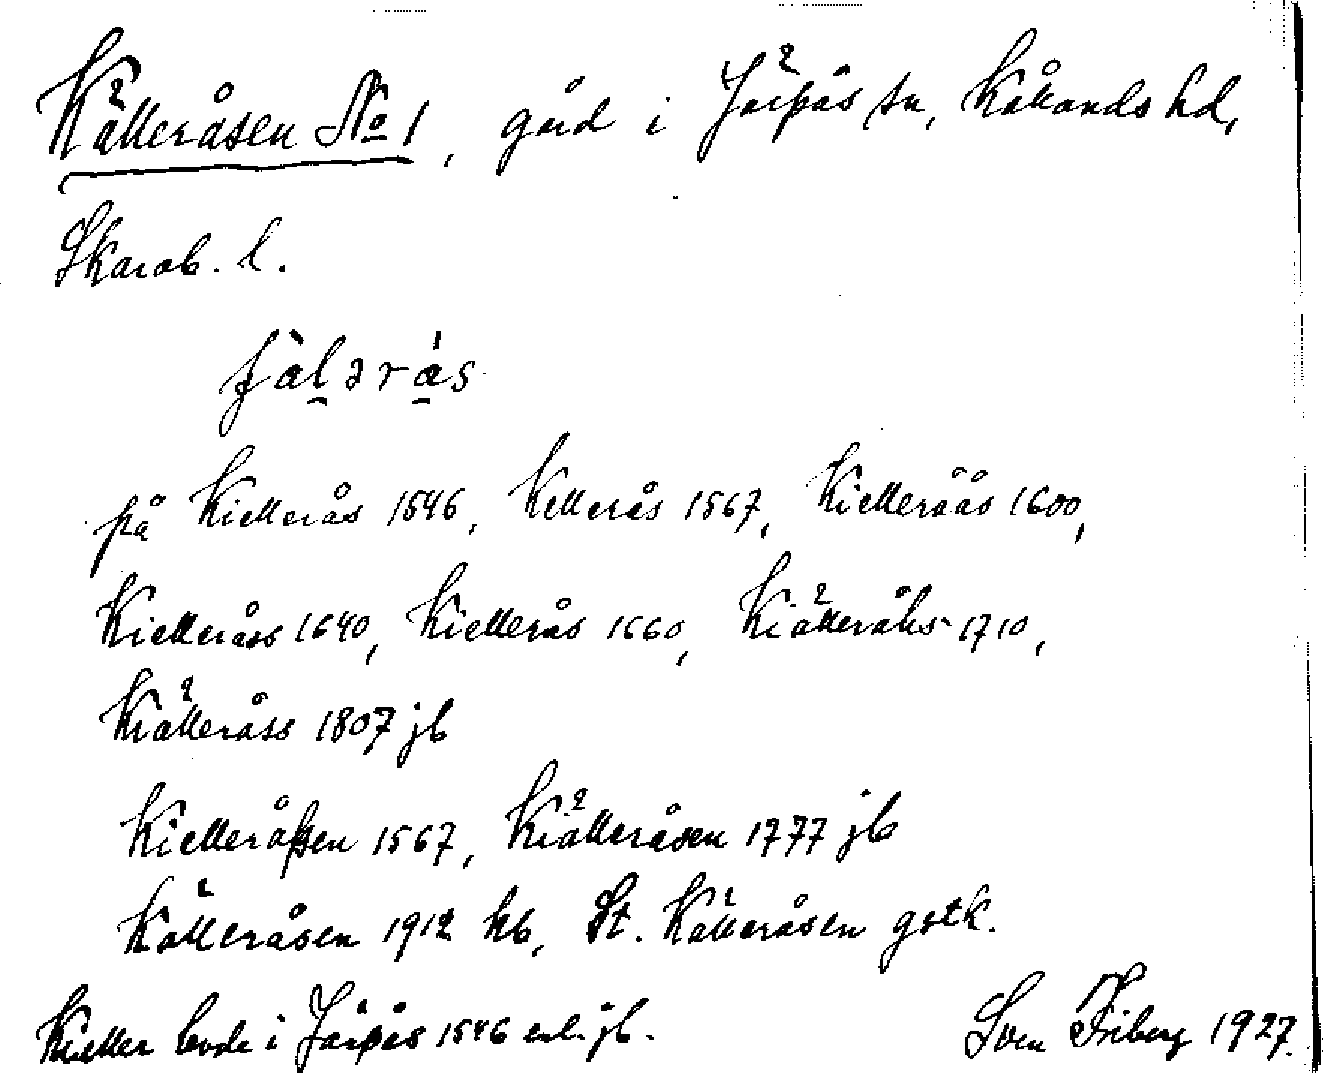 Källeråsen No 1, gård i Järpås sn, Kållands hd,
Skarab. l.
på Kiellerås 1546, Kellerås 1567, Kielleråås 1600,
Kielleråss 1640, Kiellerås 1660, Kiälleråhs 1710,
Kiälleråss 1807 jb
Kielleråssen 1567, Kiälleråsen 1777 jb
Källeråsen 1912 hb, St. Källeråsen gstk.
Kieller bode i Järpås 1546 enl. jb.
Sven Friberg 1927.